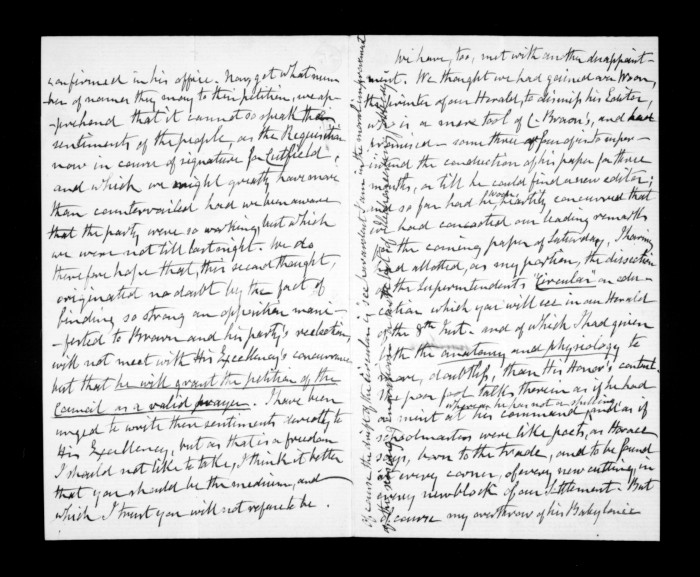 confirmed in his office. May get what num-
ber of names they may to their petition, we ap-
prehend that it cannot so speak the
sentiments of the people, as the Requisition
now in course of signature for Cutfield,
and which we might greatly have more
than countervailed had we been aware
that the party were so working, but which
we were not till last night. We do
therefore hope that, this second thought,
originated no doubt by the fact of
finding so strong an opposition mani-
fested to Brown and his party's reelection,
will not meet with His Excellency's concurrence
but that he will grant the petition of the
Council as a valid prayer. I have been
urged to write these sentiments directly to
His Excellency, but as that is a freedom
I should not like to take, I think it better
that you should be the medium, and
which I trust you will not refuse to be.
We have, too, met with another disappoint-
ment. We thought we had gained over Woon,
the printer of our Herald, to dismiss his Editor,
who is a mere tool of C. Brown's, and had
promised - some three or four of us to super-
intend the conduction of his paper for three
months, or till he could find a new editor;
and so far had he (Woon) heartily concurred that
had concocted our leading remarks
the coming paper of Saturday, I having
had allotted, as my portion, the dissection
the Superintendents "Circular" on edu-
cation which you will see in our Herald
the 8th Inst. and of which I had given
the anatomy and physiology to
more, doubtless, than His Honor's content.
The poor fool talks therein as if he had
whereas he has not a shilling
a mint at his command, and as if
schoolmasters were like poets, as Horace
says, born to the trade, and to be found
at every corner, of every new cutting, in
every new block of our Settlement. But
of course my overthrow of his Babylonic
of course the drift of the Circular is